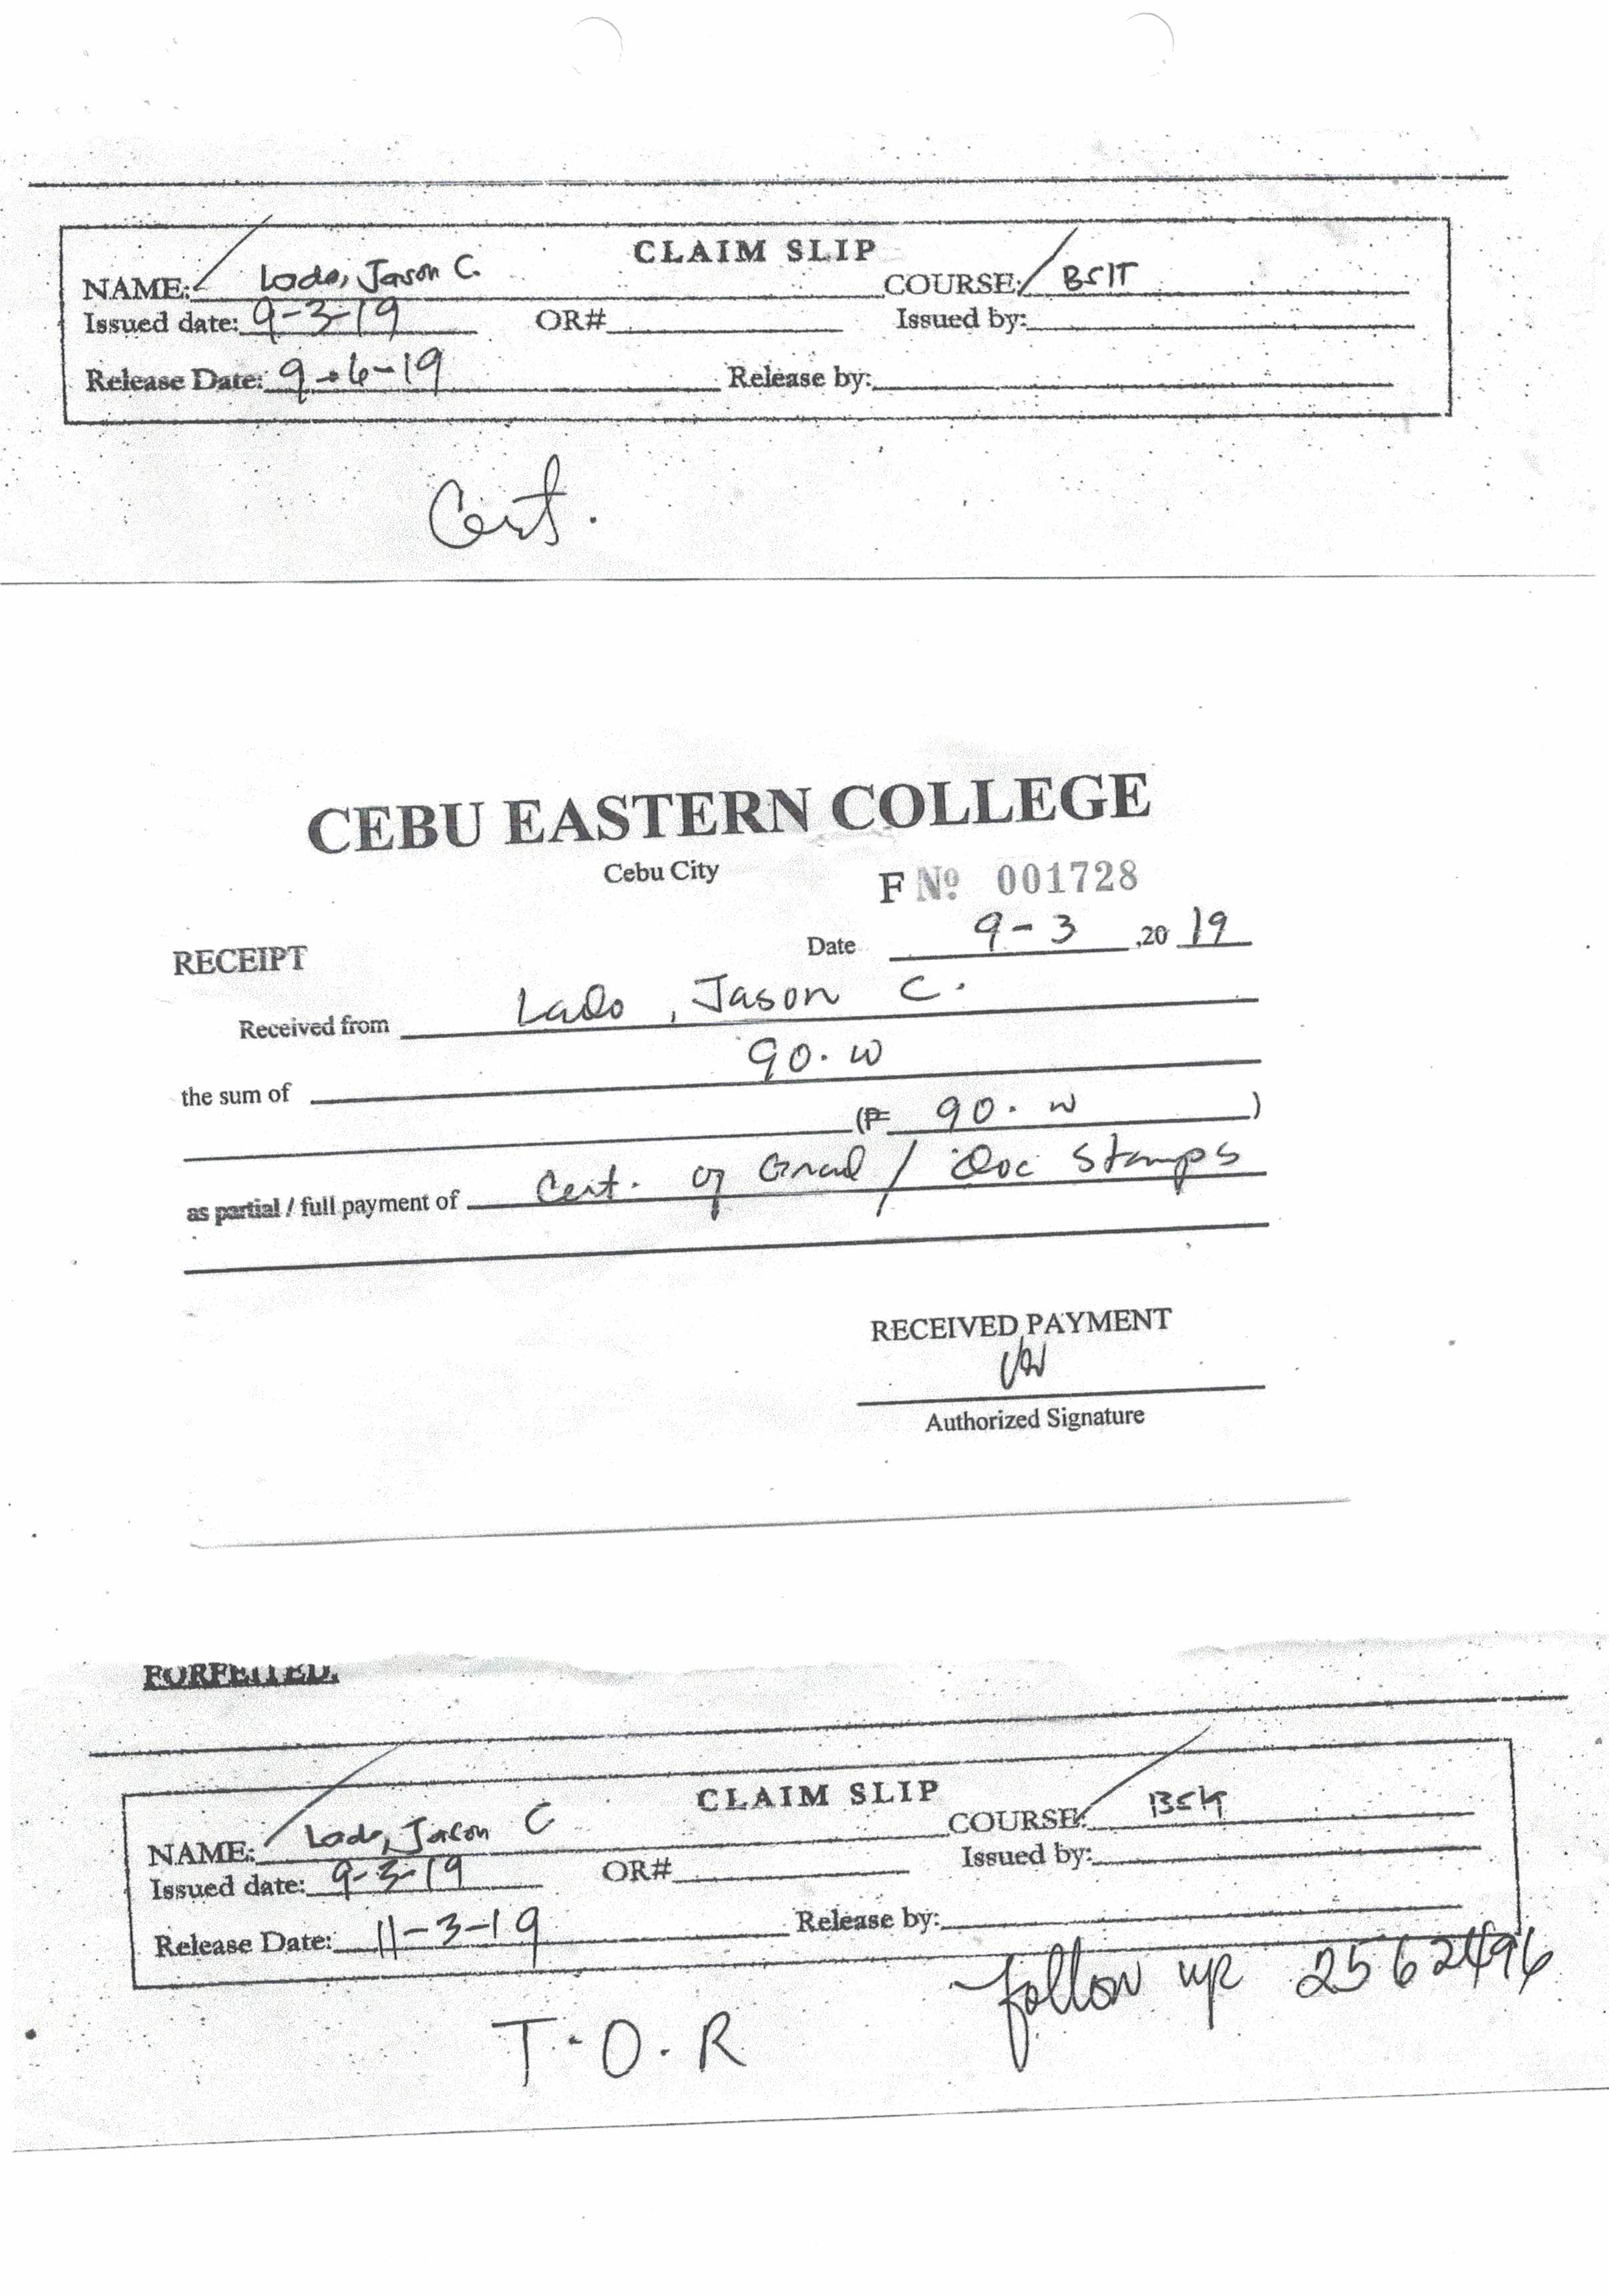 CLAIM SLIP
NAME: Lado, Jason C. COURSE: BSIT
Issued date: 9-3-19 OR# Issued by:
Release Date: 9-6-19 Release by:
Cert.
CEBU EASTERN COLLEGE
Cebu City
F Nº 001728
RECEIPT Date 9-3, 20 19
Received from Lado, Jason C.
the sum of 90.00
(₱ 90.00)
as partial / full payment of Cert. of Grad / Doc Stamps
RECEIVED PAYMENT
Authorized Signature
FORFEITED.
CLAIM SLIP
NAME: Lado, Jason C COURSE: BSIT
Issued date: 9-3-19 OR# Issued by:
Release Date: 11-3-19 Release by:
follow up 2562496
T.O.R